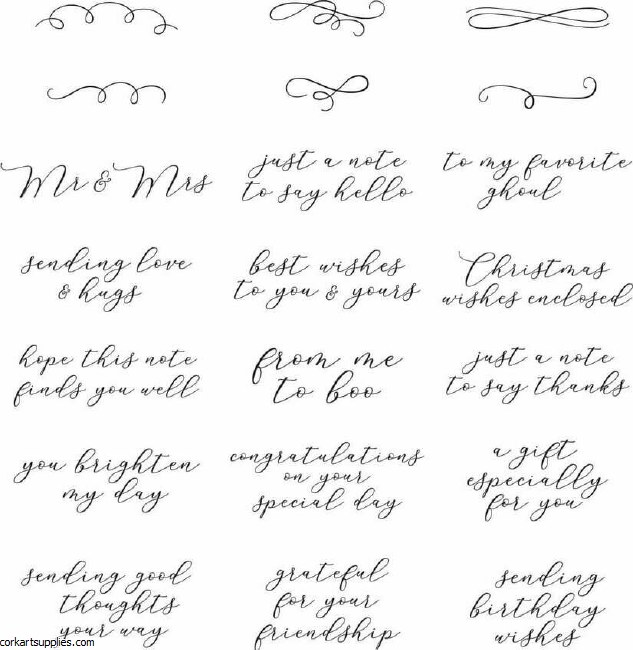 Mr & Mrs
just a note
to say hello
to my favorite
ghoul
sending love
& hugs
best wishes
to you & yours
Christmas
wishes enclosed
hope this note
finds you well
from me
to boo
just a note
to say thanks
you brighten
my day
congratulations
on your
special day
a gift
especially
for you
sending good
thoughts
your way
grateful
for your
friendship
sending
birthday
wishes
corkartsupplies.com